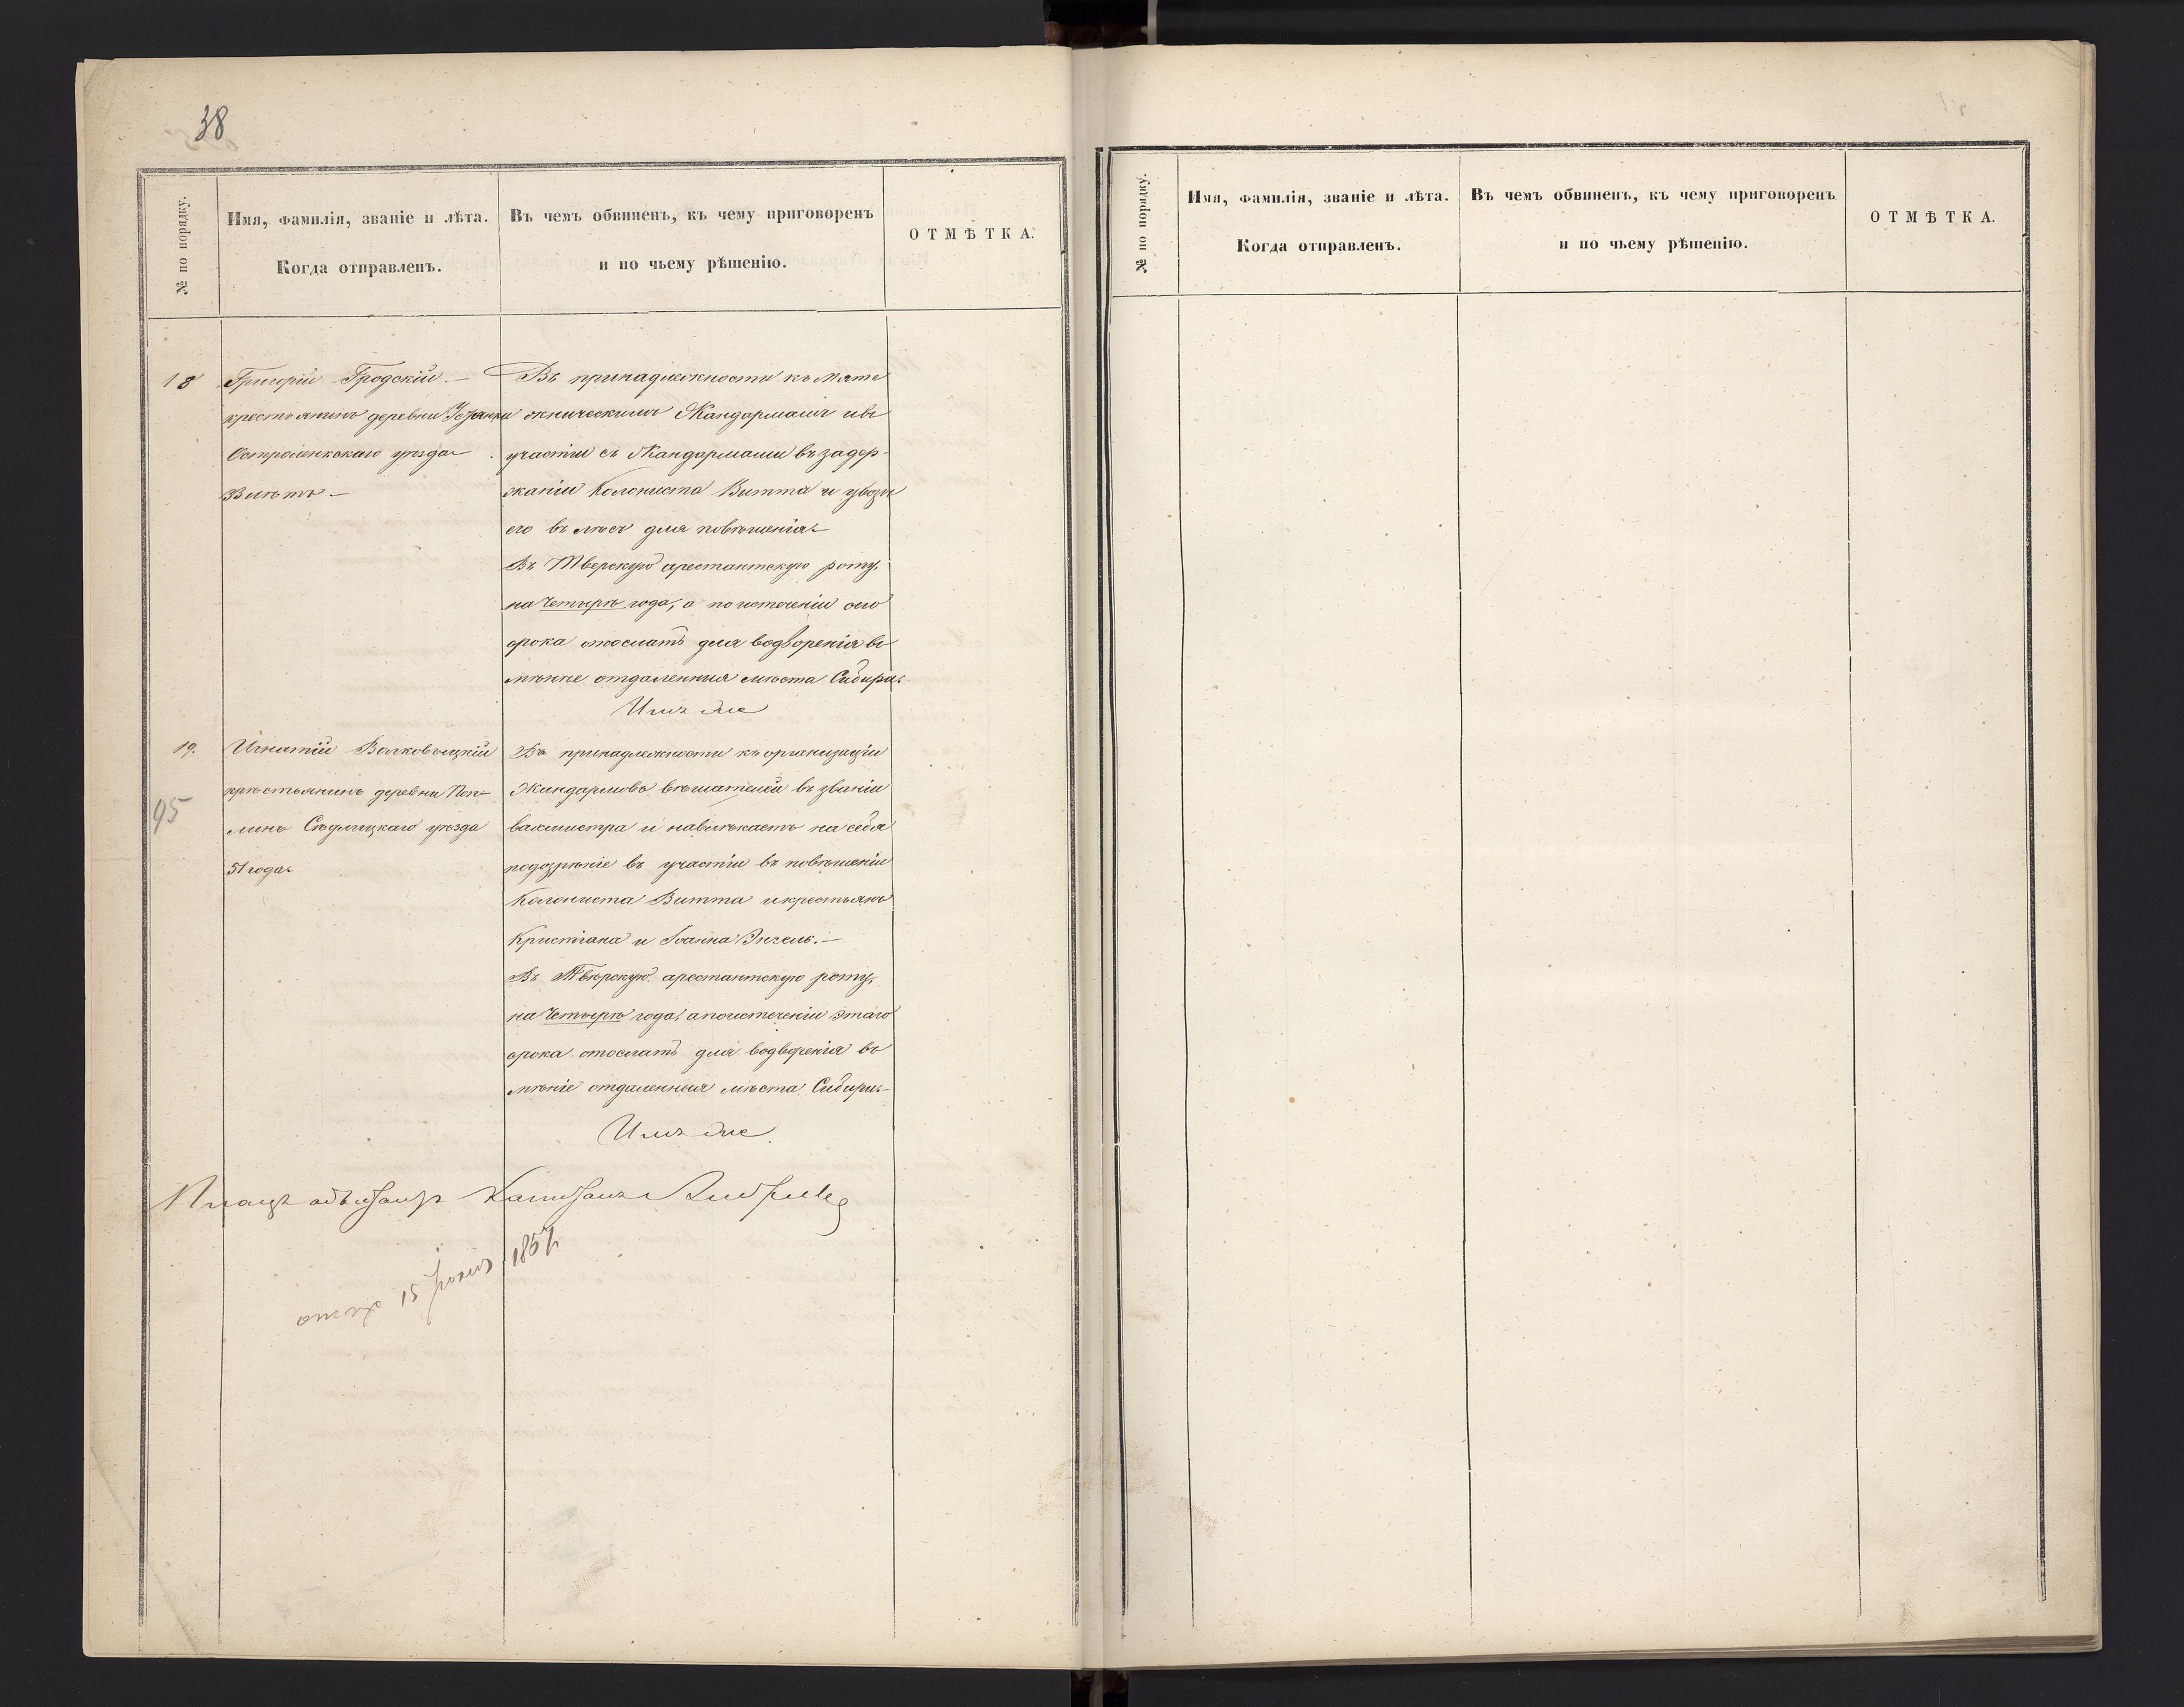 38
№ по порядку.
Имя, фамилія, званіе и лѣта.
Когда отправленъ.
Въ чемъ обвиненъ, къ чему приговоренъ
и по чьему рѣшенію.
ОТМѢТКА.
18
Григорій Гродскій. —
крестьянинъ деревни
Остроленкскаго уѣзда
лѣтъ —
Въ принадлежности къ мяте
жническимъ Жандармамъ и въ
участіи съ Жандармами въ задер-
жаніи Колониста Витта и увозѣ
его въ лѣсъ для повѣшенія
Въ Тверскую арестантскую роту,
на Четыре года, а по истеченіи
срока отослать для водворенія въ
мѣнѣе отдаленныя мѣста Сибири.
Имъ же
19.
95
Игнатій Волковыцкій
крѣстьянинъ деревни Поп-
линъ Сѣдлецкаго уѣзда
51 года
Въ принадлежности къ организаціи
Жандармовъ вѣшателей въ званіи
вахмистра и навлѣкаетъ на себя
подозрѣніе въ участіи въ повѣшеніи
Колониста Витта и крестьянъ
Кристіана и Іоанна Энгель. —
Въ Твѣрскую арестантскую роту,
на Четырѣ года, а по истеченіи этаго
срока отослать для водворенія въ
мѣнѣе отдаленныя мѣста Сибири. —
Имъ же
Плацъ адъютантъ Капитанъ
15 1867
№ по порядку.
Имя, фамилія, званіе и лѣта.
Когда отправленъ.
Въ чемъ обвиненъ, къ чему приговоренъ
и по чьему рѣшенію.
ОТМѢТКА.